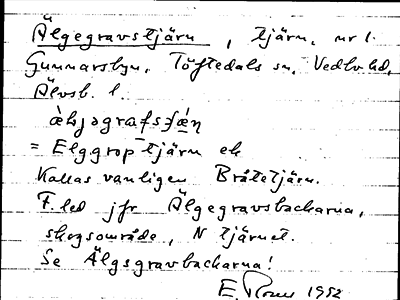 Älgegravstjärn, tjärn, nr 1.
Gunnarsbyn, Töftedals sn, Vedbo hd,
Älvsb. l.
= Elggrop-tjärn ek
Kallas vanligen Bråtetjärn.
F. led jfr Älgegravsbackarna,
skogsområde, N tjärnet.
Se Älgsgravbackarna!
E. 1952